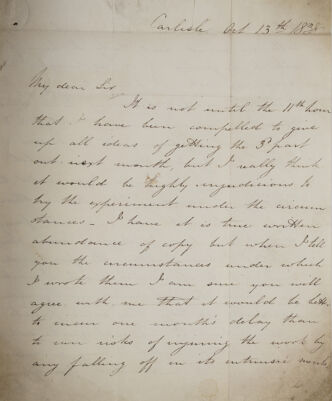 Carlisle Oct 13th 1838
My dear Sir
It is not until the 11th hour
that I have been compelled to give
up all ideas of getting the 3d part
out next month, but I really think
it would be highly injudicious to
try the experiment under the circum
stances - I have it is true written
abundance of copy but when I tell
you the circumstances under which
I wrote them I am sure you will
agree with me that it would be better
to incur one month's delay than
to run risks of injuring the work by
any falling off in its intrinsic merits